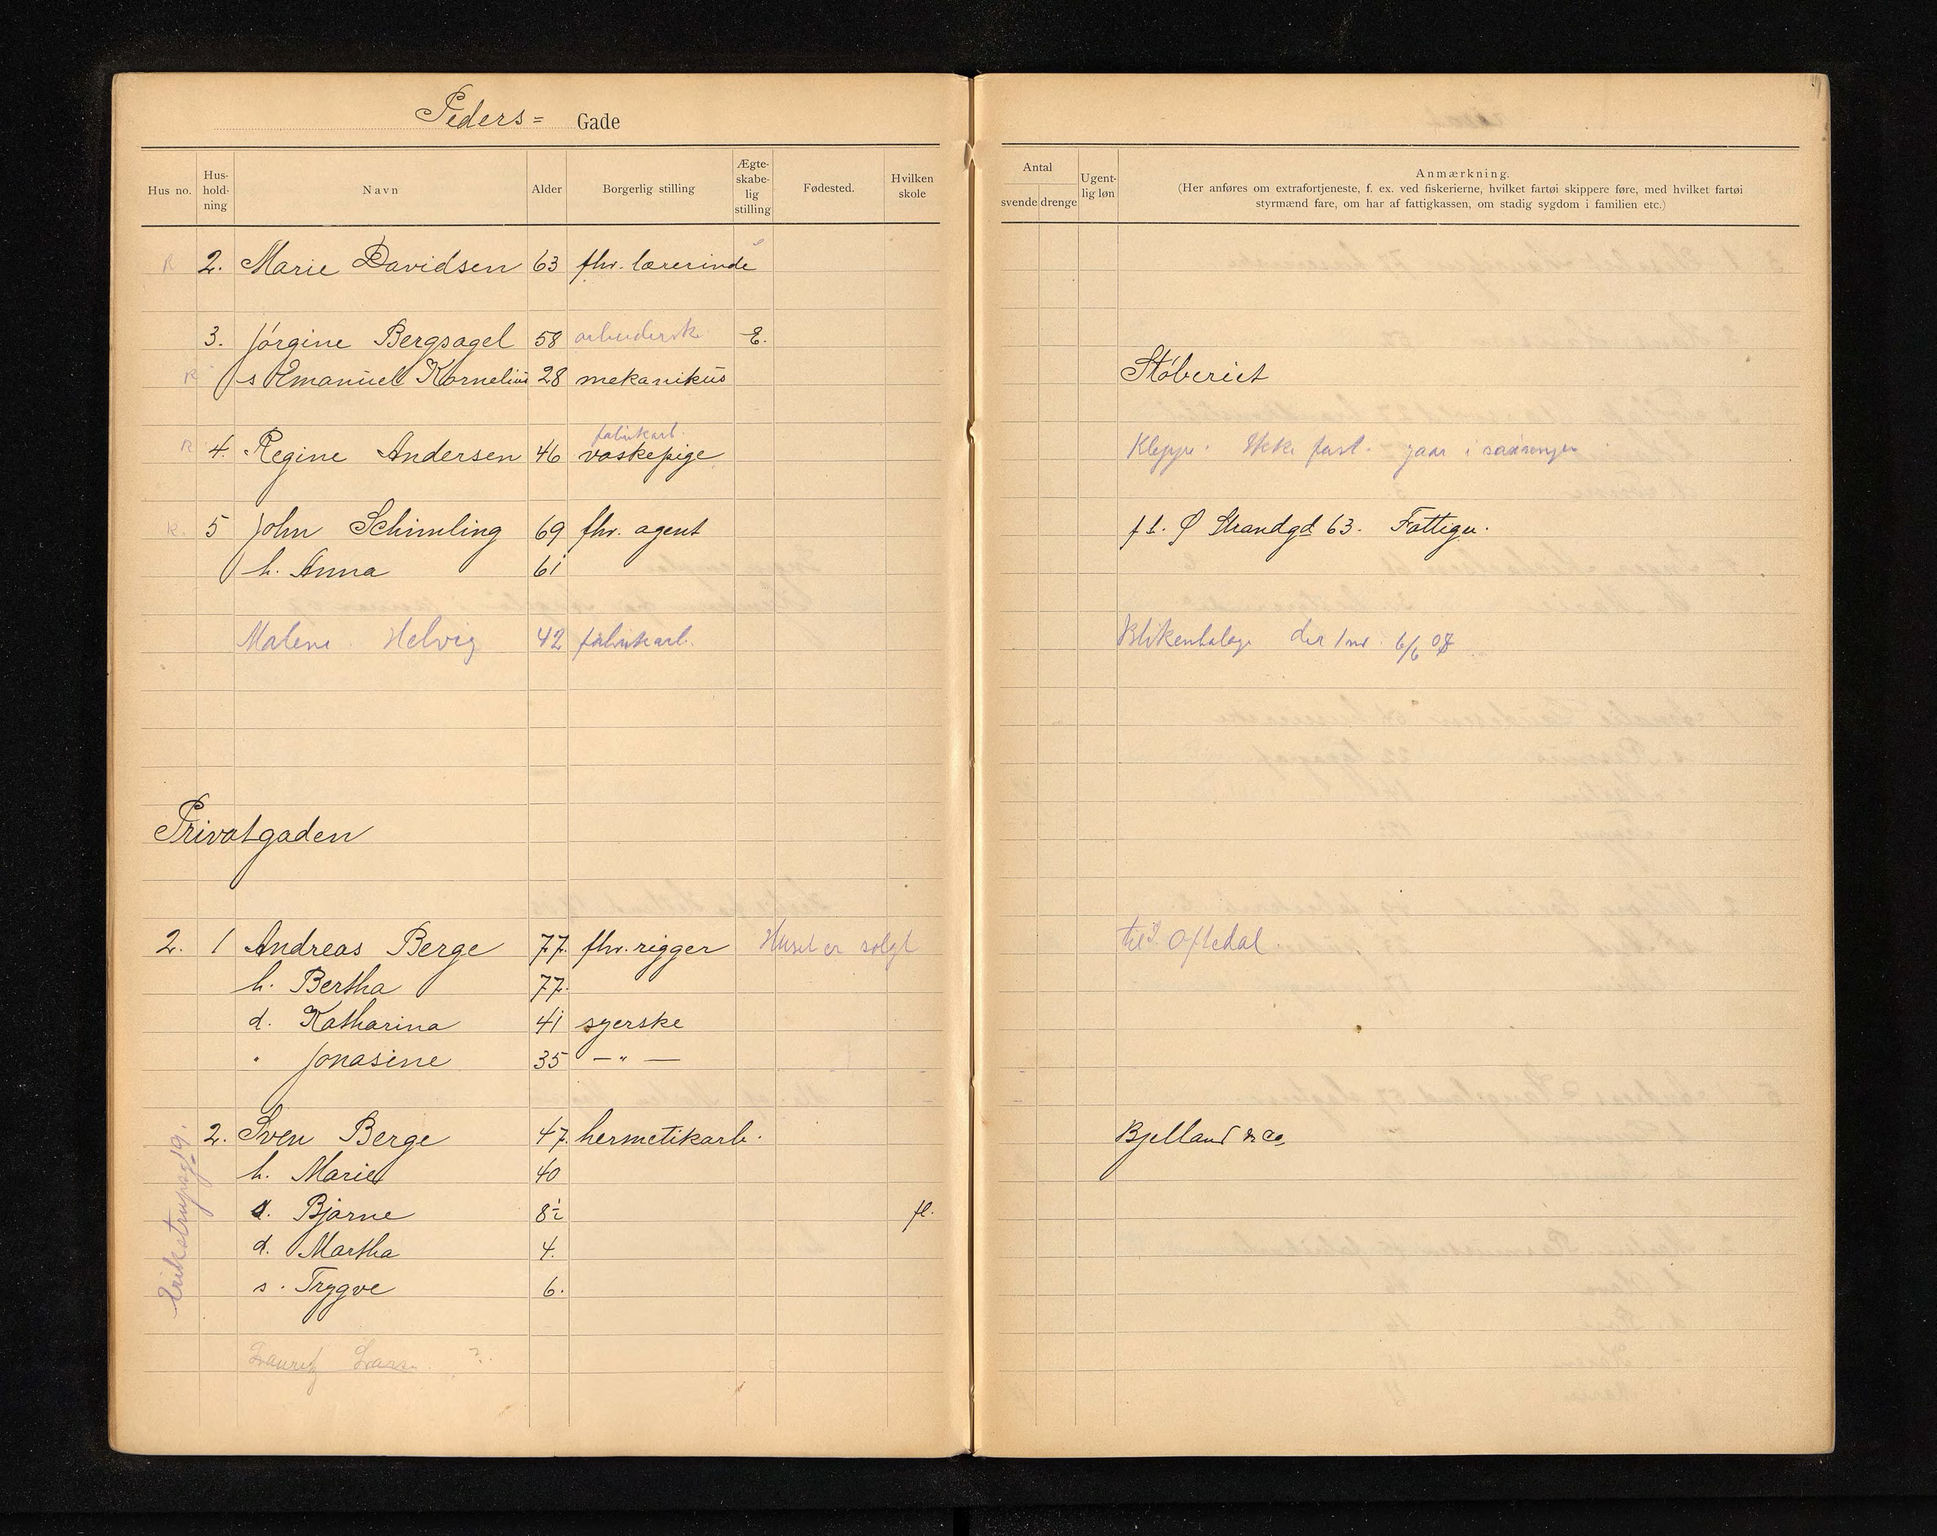 Peders= Gade
Hus no. Hus-hold-ning Navn Alder Borgerlig stilling Ægte-skabe-lig stilling Fødested. Hvilken skole
Antal svende drenge Ugent-lig løn
Anmærkning.
(Her anføres om extrafortjeneste, f. ex. ved fiskerierne, hvilket fartøi skippere føre, med hvilket fartøi
styrmænd fare, om har af fattigkassen, om stadig sygdom i familien etc.)
R 2. Marie Davidsen 63 fhv. lærerinde
3. Jørgine Bergsagel 58 arbeidersk E.
R s Emanuel Kornelius 28 mekanikus Støberiet
fabrikarb.
R 4. Regine Andersen 46 vaskepige Kleppe. Ikke fast. gaar i
R. 5 John Schimling 69 fhv. agent f t. Ø Strandgd 63. Fattigv.
h. Anna 61
Malene Helvig 42 fabrikarb. der 1 mr. 6/6 08
Privatgaden
2. 1 Andreas Berge 77. fhv. rigger Huset er solgt til Oftedal
h. Bertha 77.
d. Katharina 41 syerske
" Jonasine 35 — " —
2. Sven Berge 47. hermetikarb. Bjelland & Co.
h. Marie 40
s. Bjarne 8½ fl.
d. Martha 4.
s. Trygve 6.
Erikstrupsg 19.
?